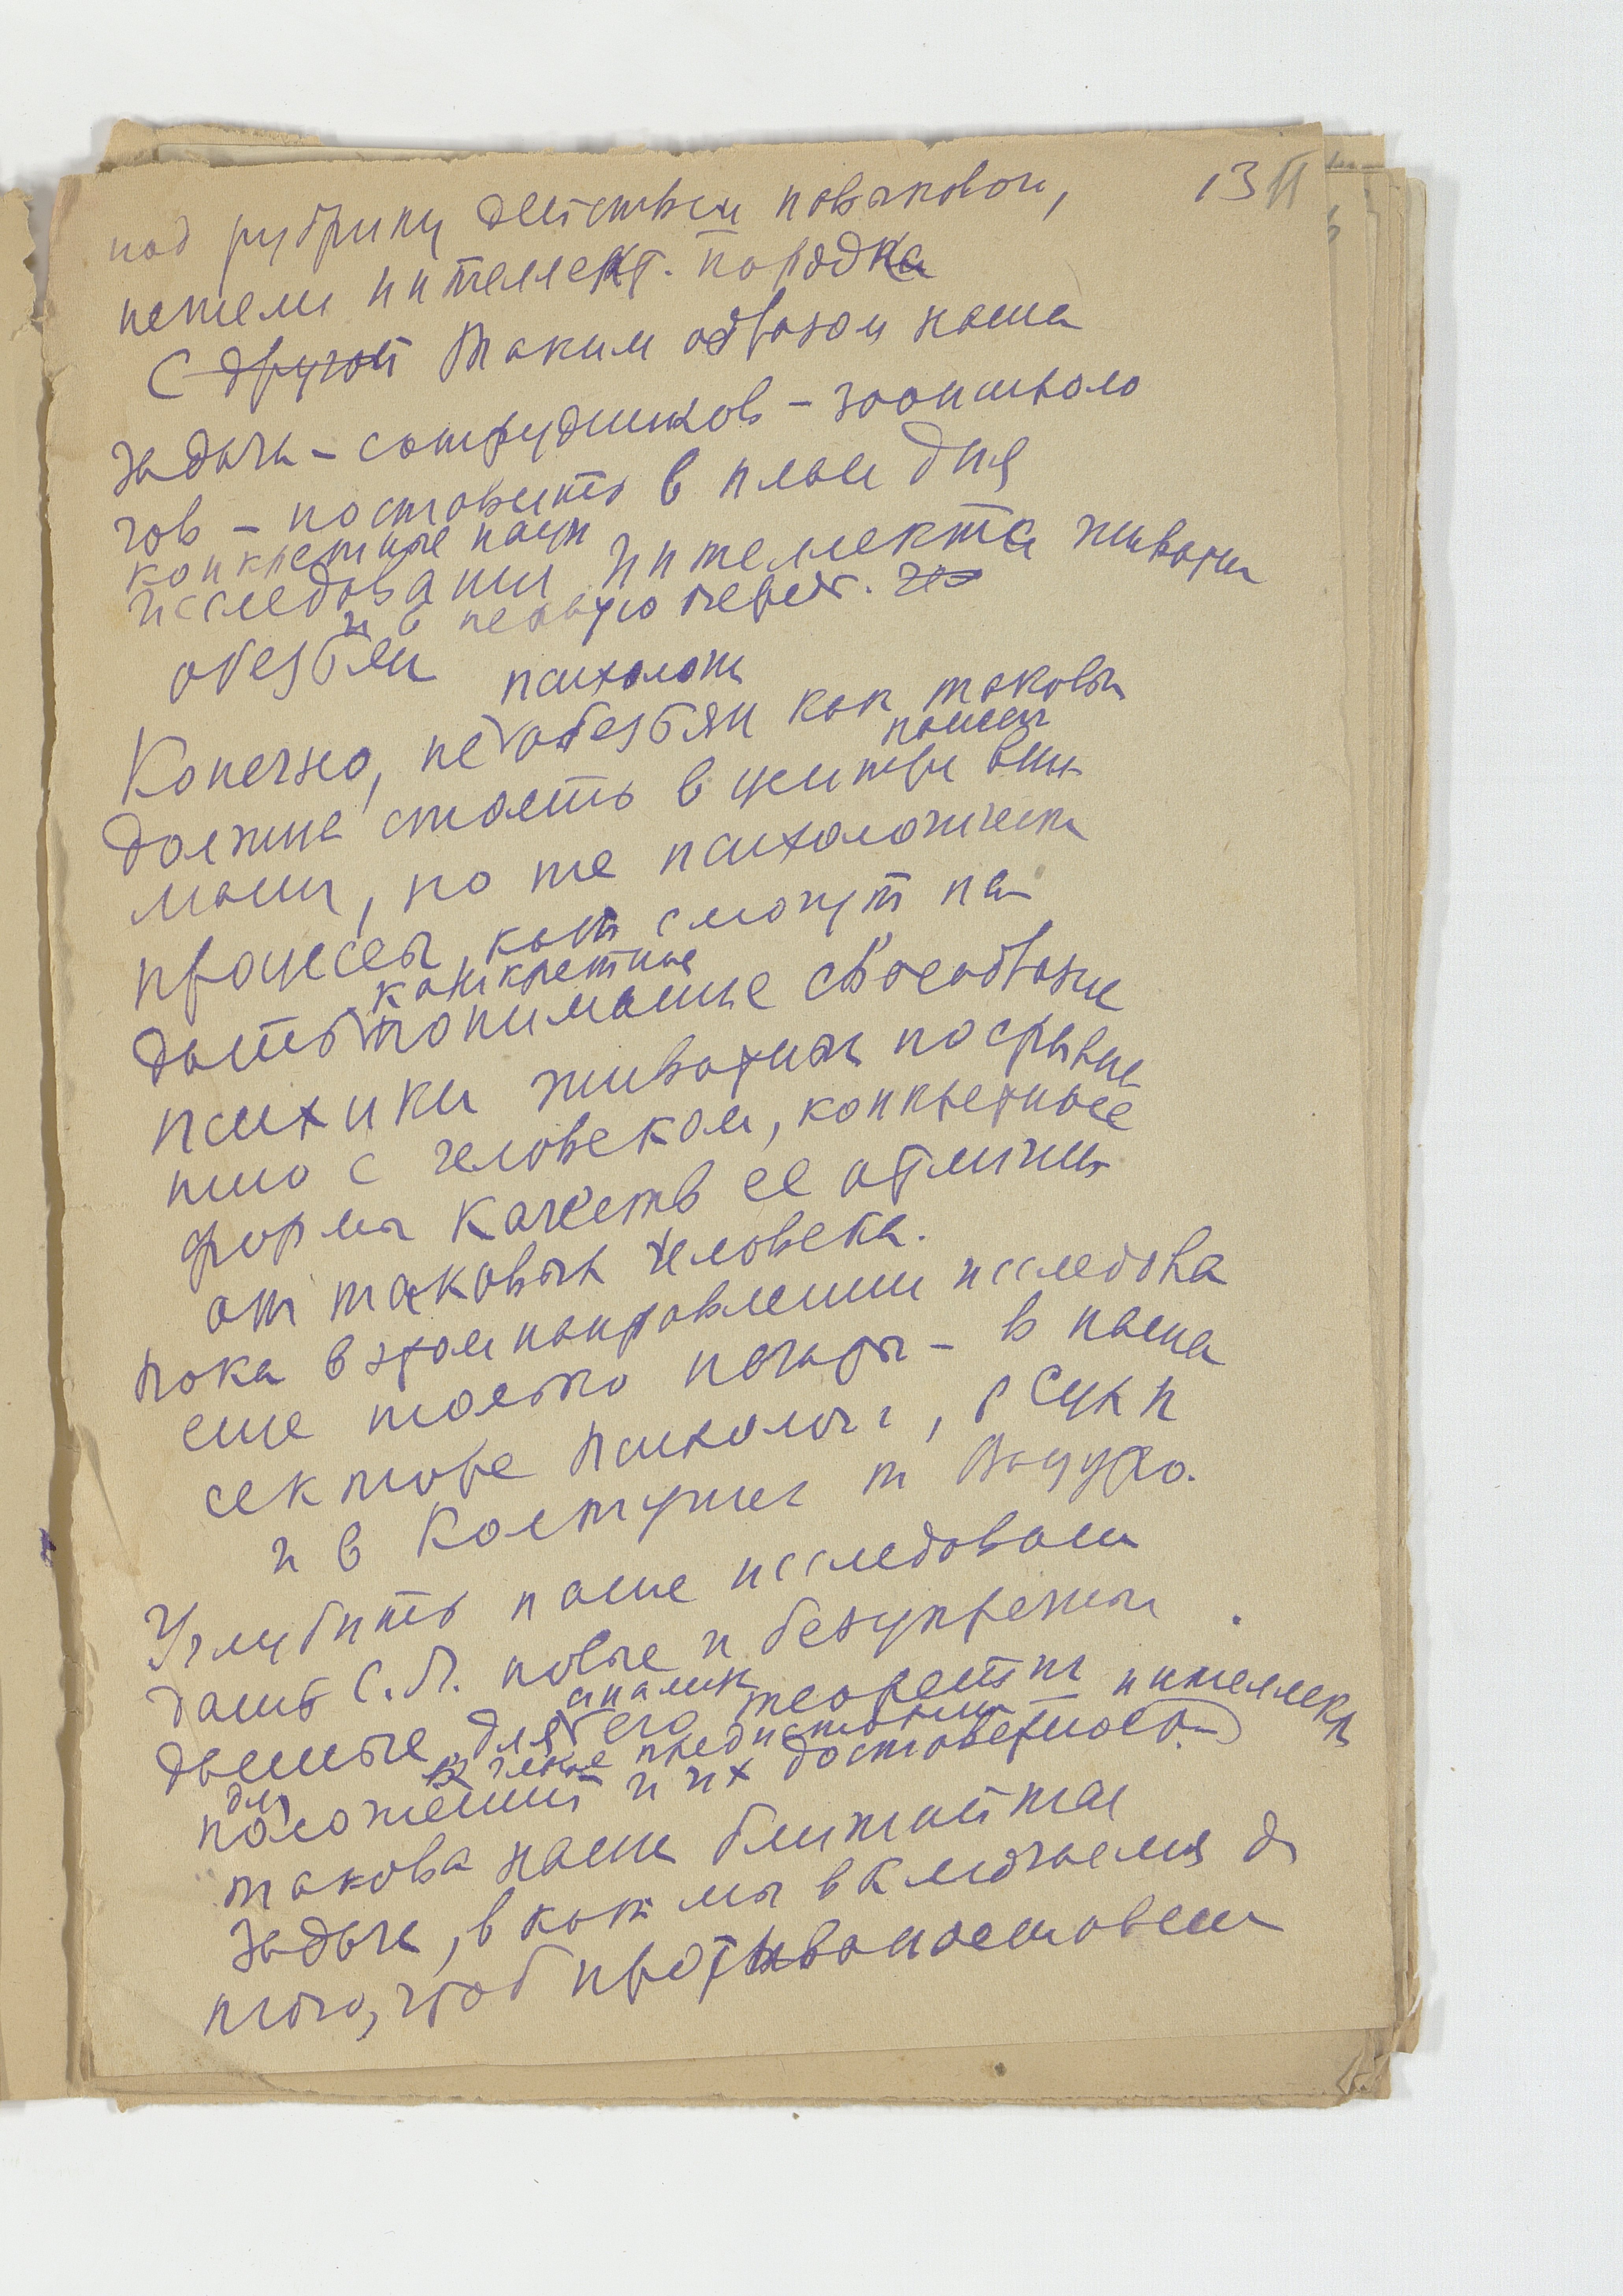 13 II
под рубрику действий навыковой,
нежели интеллект. порядка
С другой Таким образом наша
задача – сотрудников – зоопсихоло
гов – поставить в план дня
конкретные
исследования интеллекта животн
и в первую черед.
обезьян
психологи
Конечно, не обезьян как таковы
должна стать в центре вни
мани, но те психологически
процессы, кот смогут на
конкретные
дать понимание своеобразие
психики животных по сравне
нию с человеком, конкретные
формы качеств ее отличия
от таковых человека.
Пока в этом направлении исследова
еще только начаты – в наша
секторе психолог, в Сух п
и в Колтушах
Углубить наше исследовани
дать С.Л. новые и безупречны
данные для его теорети интеллект
положений и их достоверность
такова наша ближайшая
задача, в кот мы включаемся д
того, чтоб противопоставит